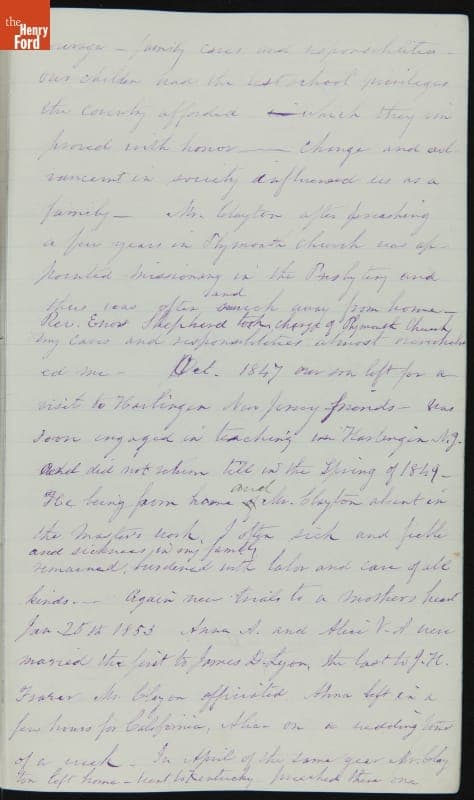 the
Henry
Ford
family cares and responsibilities -
our childen had the best school privileges
the country afforded which they im
proved with honor — Change and ad
vancement in society influenced us as a
family — Mr. Clayton after preaching
a few years in Plymouth Church was ap-
pointed missionary in the Presbytery and
and
thus was often much away from home —
Rev. Enos Shepherd took charge of Plymouth Church
my cares and responsibilities almost
ed me - Oct. 1847 our son left for a
visit to Harlingen New Jersey friends - was
soon engaged in teaching in Harlingen N.J.
and did not return till in the Spring of 1849 -
and
He being from home Mr. Clayton absent in
the Masters work, I often sick and feeble
and sickness in my family
remained, burdened with labor and care of all
kinds. — Again new trials to a mothers heart
Jan 20th 1853 Anna A. and Alice V. A. were
maried the first to James D. Lyon, the last to J. H.
Frazer Mr. Clayon officiated Anna left in a
few hours for California, Alice on a wedding tour
of a week. In April of the same year Mr. Clay
ton left home - went to Kentucky preached there one